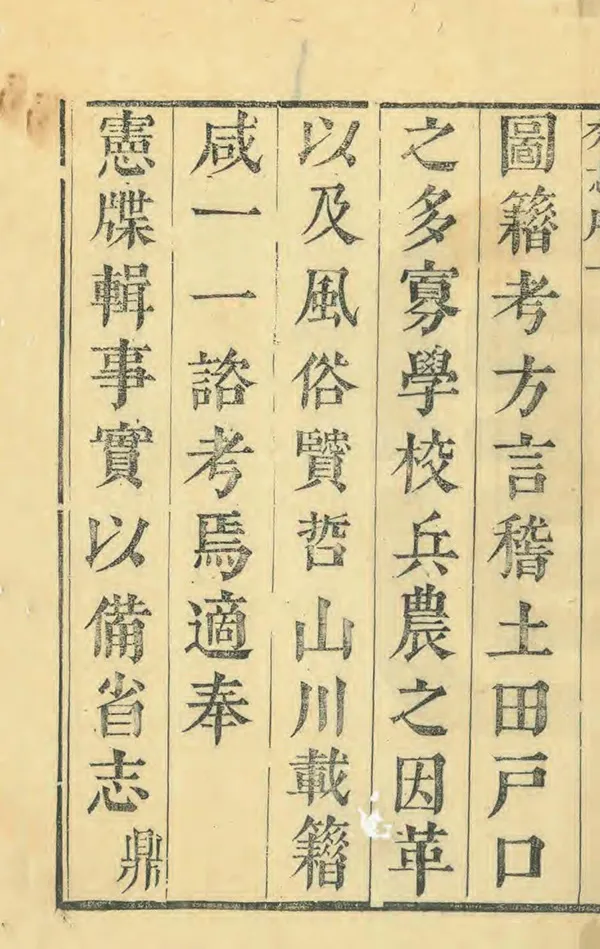 圖籍考方言稽土田戸口
之多寡學校兵農之因革
以及風俗賢哲山川載籍
咸一一諮考焉適奉
憲牒輯事實以備省志鼎